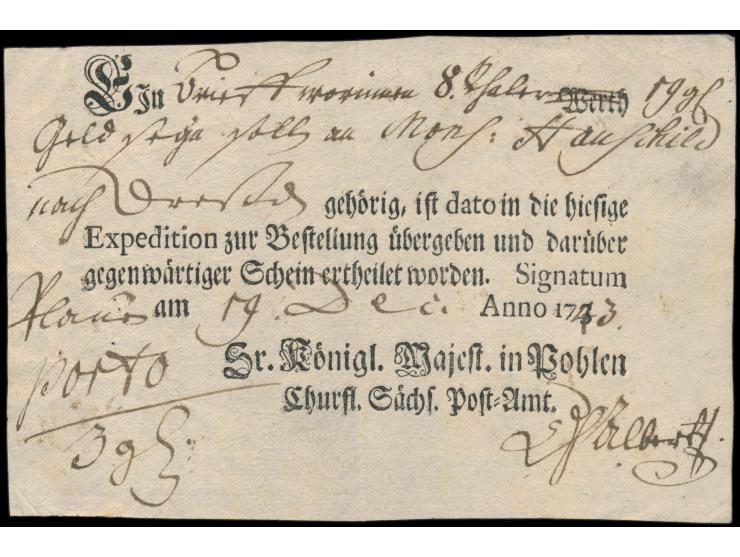 Ein Brieff worinnen 8. Thaler Werth 19 gl
Geld seyn soll an Mons: Hauschild
nach Dresden gehörig, ist dato in die hiesige
Expedition zur Bestellung übergeben und darüber
gegenwärtiger Schein ertheilet worden. Signatum
Plauen am 19. Dec. Anno 1743.
porto Sr. Königl. Majest. in Pohlen
Churfl. Sächs. Post-Amt.
3 gl